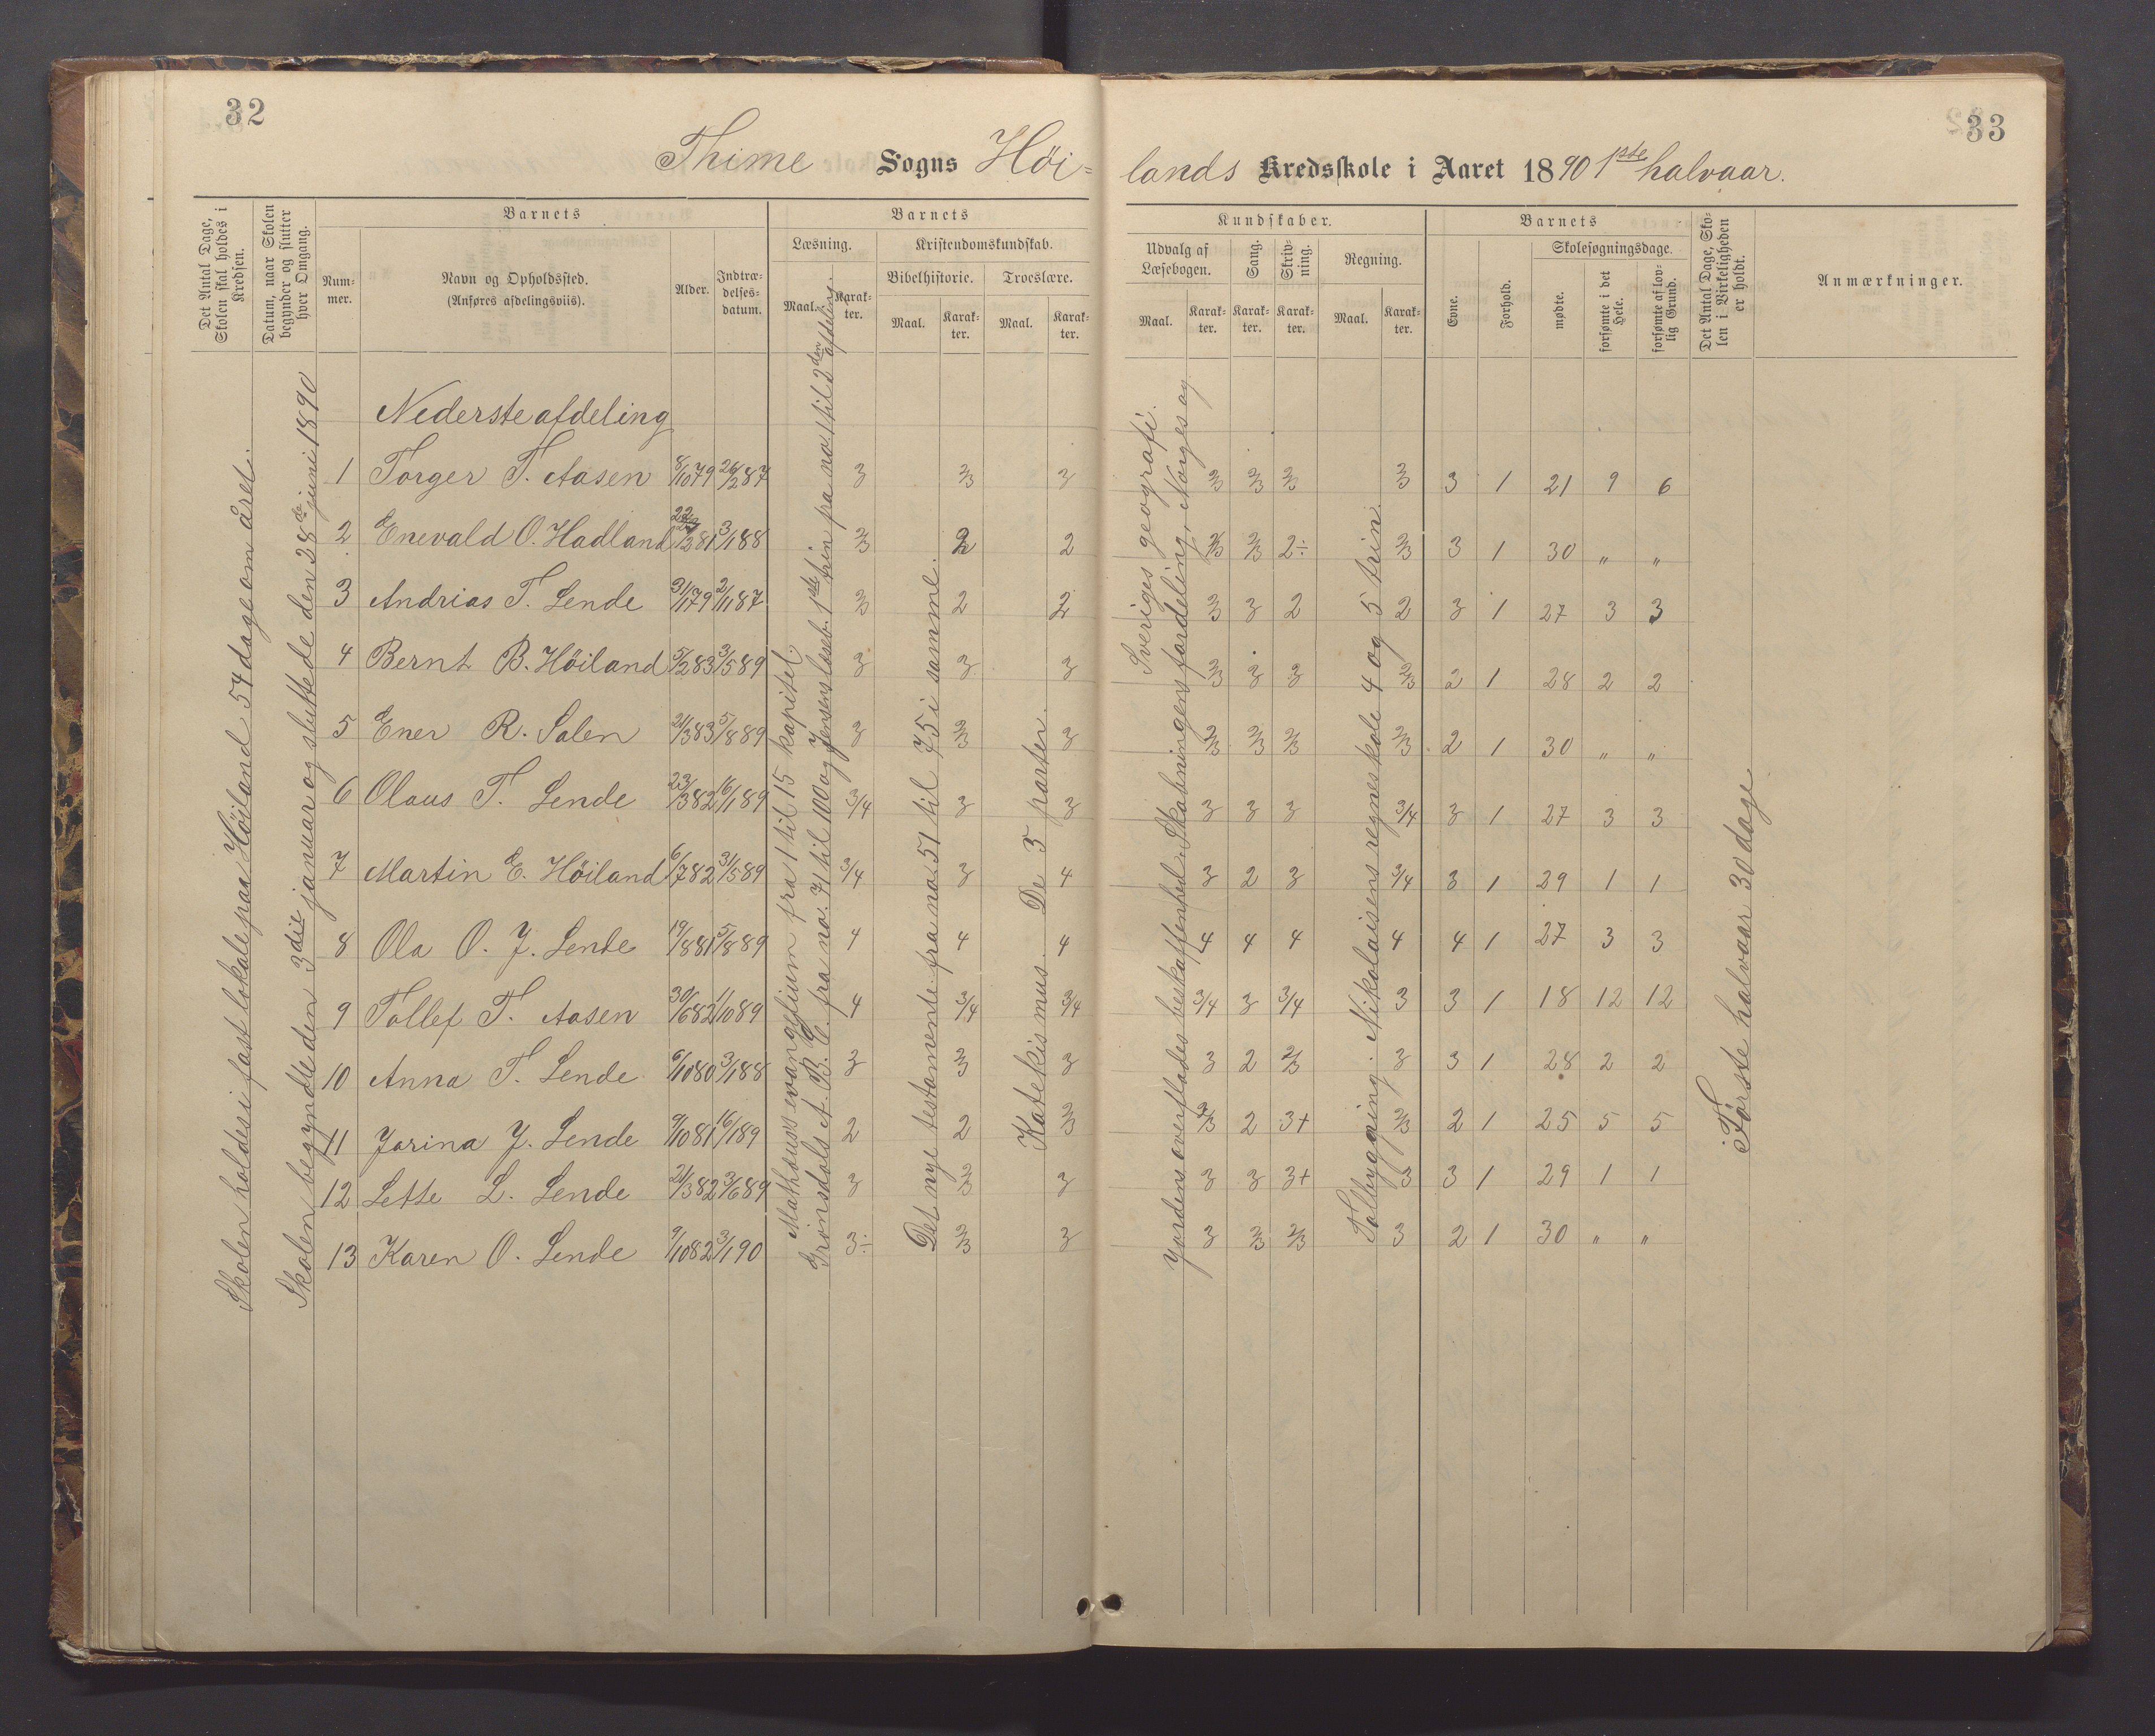 32
33
Thime Sogns Höi-
lands Kredsskole i Aaret 1890 1ste halvaar.
Det Antal Dage, Skolen skal holdes i Kredsen.
Datum, naar Skolen begynder og slutter hver Omgang.
Barnets
Num-mer.
Navn og Opholdssted.
(Anføres afdelingsviis).
Alder.
Indtræ-delses-datum.
Barnets
Læsning.
Maal.
Karak-ter.
Kristendomskundskab.
Bibelhistorie.
Maal.
Karak-ter.
Troeslære.
Maal.
Karak-ter.
Kundskaber.
Udvalg af Læsebogen.
Maal.
Karak-ter.
Sang.
Karak-ter.
Skriv-ning.
Karak-ter.
Regning.
Maal.
Karak-ter.
Barnets
Evne.
Forhold.
Skolesøgningsdage.
mødte.
forsømte i det Hele.
forsømte af lov-lig Grund.
Det Antal Dage, Sko-len i Virkeligheden er holdt.
Anmærkninger.
Skolen holdes i fast lokale paa Höiland 54 dage om året.
Skolen begyndte den 3die januar og sluttede den 28de juni 1890
Mathæus evangelium fra 1 til 15 kapitel.
Grönsdals A.B.C. fra no. 71 til 100 og Jensens læseb. 1ste trin fra no 1 til 2den afdeling.
Det nye testamente fra no 51 til 75 i samme.
Katekismus. De 5 parter.
Jordens overflades beskaffenhed. Skabningens fordeling, Norges og
Sveriges geografi.
Talbygning. Nikolaisens regneskole 4 og 5 trin.
Første halvaar 30 dage
Nederste afdeling
1 Torger T. Aasen 8/10 79 26/2 87 3 2/3 3 2/3 2/3 2/3 2/3 3 1 21 9 6
2 Enevald O. Hadland 22/2 81 3/1 88 2/3 2 2 2/3 2/3 2÷ 2/3 3 1 30 " "
3 Andrias T. Lende 31/1 79 2/11 87 2/3 2 2 2/3 3 2 2 3 1 27 3 3
4 Bernt B. Höiland 5/2 83 3/5 89 3 3 3 2/3 3 3 2/3 2 1 28 2 2
5 Ener R. Salen 21/3 83 5/8 89 3 2/3 3 2/3 2/3 2/3 2/3 2 1 30 " "
6 Olaus T. Lende 23/3 82 16/1 89 3/4 3 3 3 3 3 3/4 3 1 27 3 3
7 Martin E. Höiland 6/7 82 31/5 89 3/4 3 4 3 2 3 3/4 3 1 29 1 1
8 Ola O. J. Lende 19/8 81 5/8 89 4 4 4 4 4 4 4 4 1 27 3 3
9 Tollef T. Aasen 30/6 82 1/10 89 4 3/4 3/4 3/4 3 3/4 3 3 1 18 12 12
10 Anna T. Lende 6/10 80 3/1 88 3 2/3 3 3 2 2/3 3 3 1 28 2 2
11 Jorina J. Lende 9/10 81 16/1 89 2 2 2/3 2/3 2 3+ 2/3 2 1 25 5 5
12 Lette L. Lende 21/3 82 3/6 89 3 2/3 3 3 3 3+ 3 3 1 29 1 1
13 Karen O. Lende 9/10 82 3/1 90 3÷ 2/3 3 3 2/3 2/3 3 2 1 30 " "